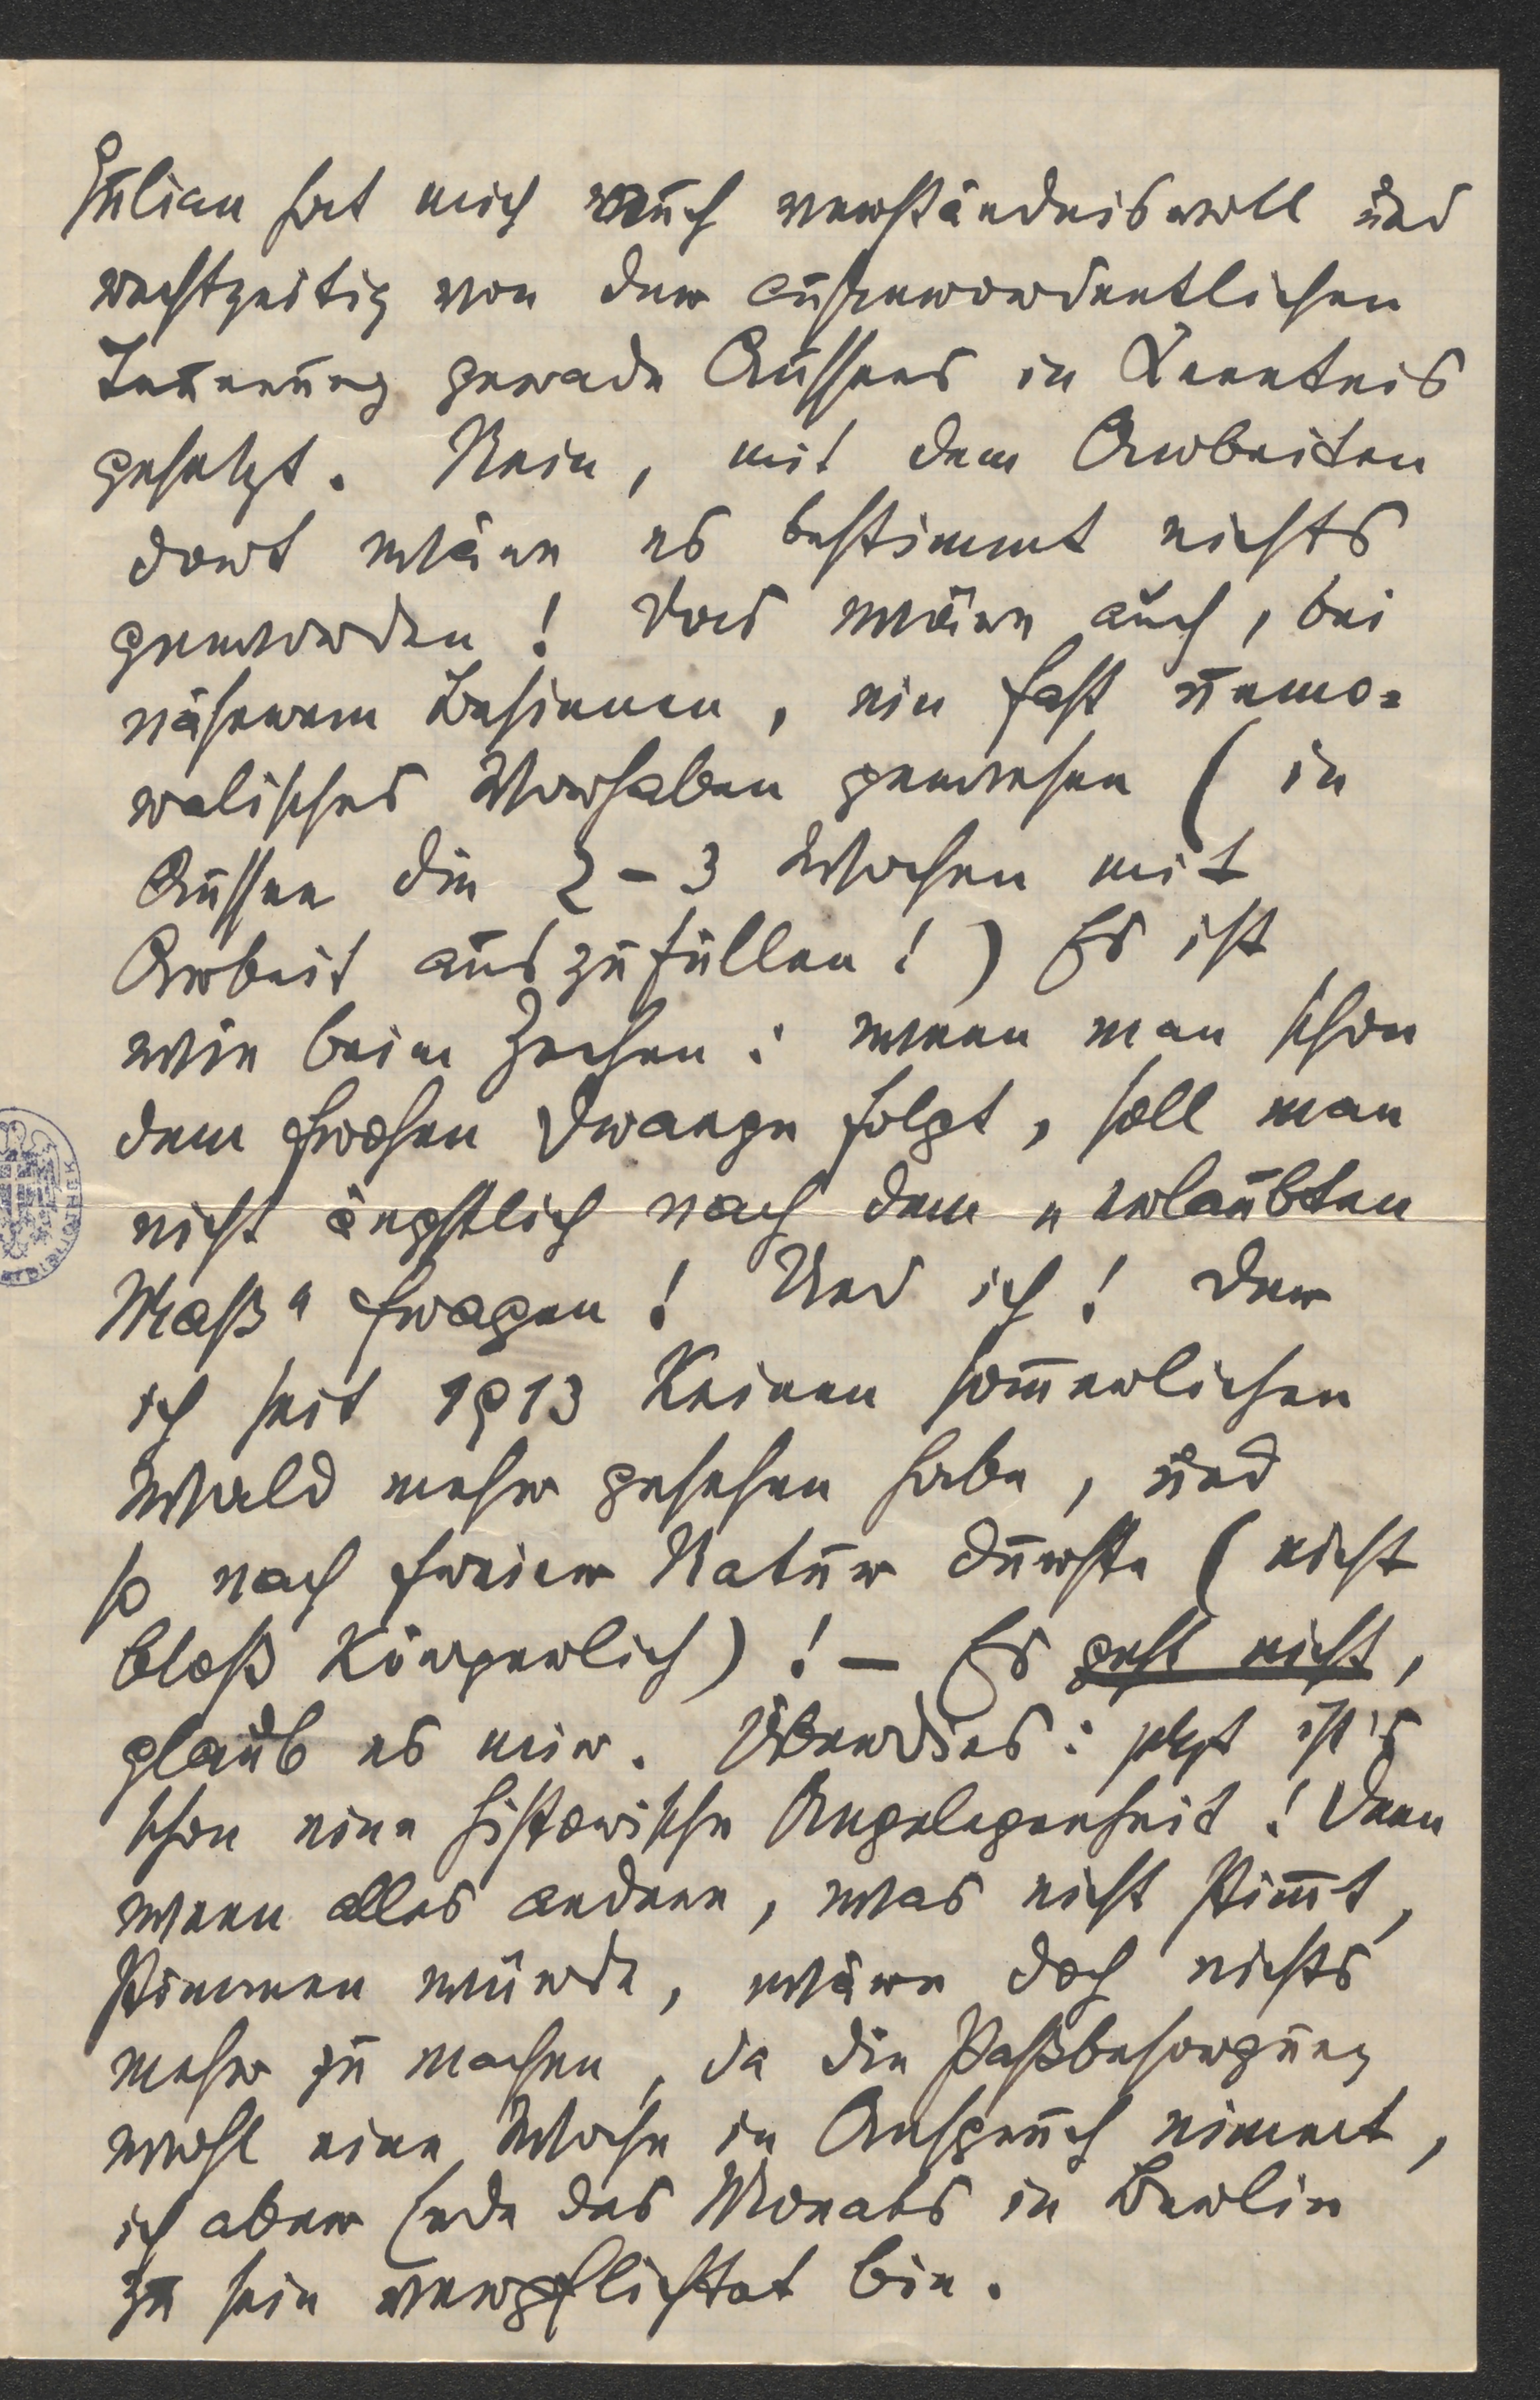 Julian hat mich rasch verständnisvoll und
rechtzeitig von der außerordentlichen
Teuerung gerade Aussees in Kenntnis
gesetzt. Nein, mit dem Arbeiten
dort wäre es bestimmt nichts
geworden! Das wäre auch, bei
näherem Besinnen, ein fast unmo=
ralisches Vorhaben gewesen (in
Aussee die 2–3 Wochen mit
Arbeit auszufüllen!) Es ist
wie beim Zechen: wenn man schon
dem frohen Drange folgt, soll man
nicht ängstlich nach dem „erlaubten
Maß“ fragen! Und ich! Der
ich seit 1913 keinen som̅erlichen
Wald mehr gesehen habe, und
so nach freier Natur dürste (nicht
bloß körperlich)! – Es geht nicht,
glaub es mir. Überdies: jetzt ist's
schon eine historische Angelegenheit! Denn
wenn alles andere, was nicht stim̅t,
stimmen würde, wäre doch nichts
mehr zu machen, da die Paßbesorgung
wohl eine Woche in Anspruch nimmt,
ich aber Ende des Monats in Berlin
zu sein verpflichtet bin.